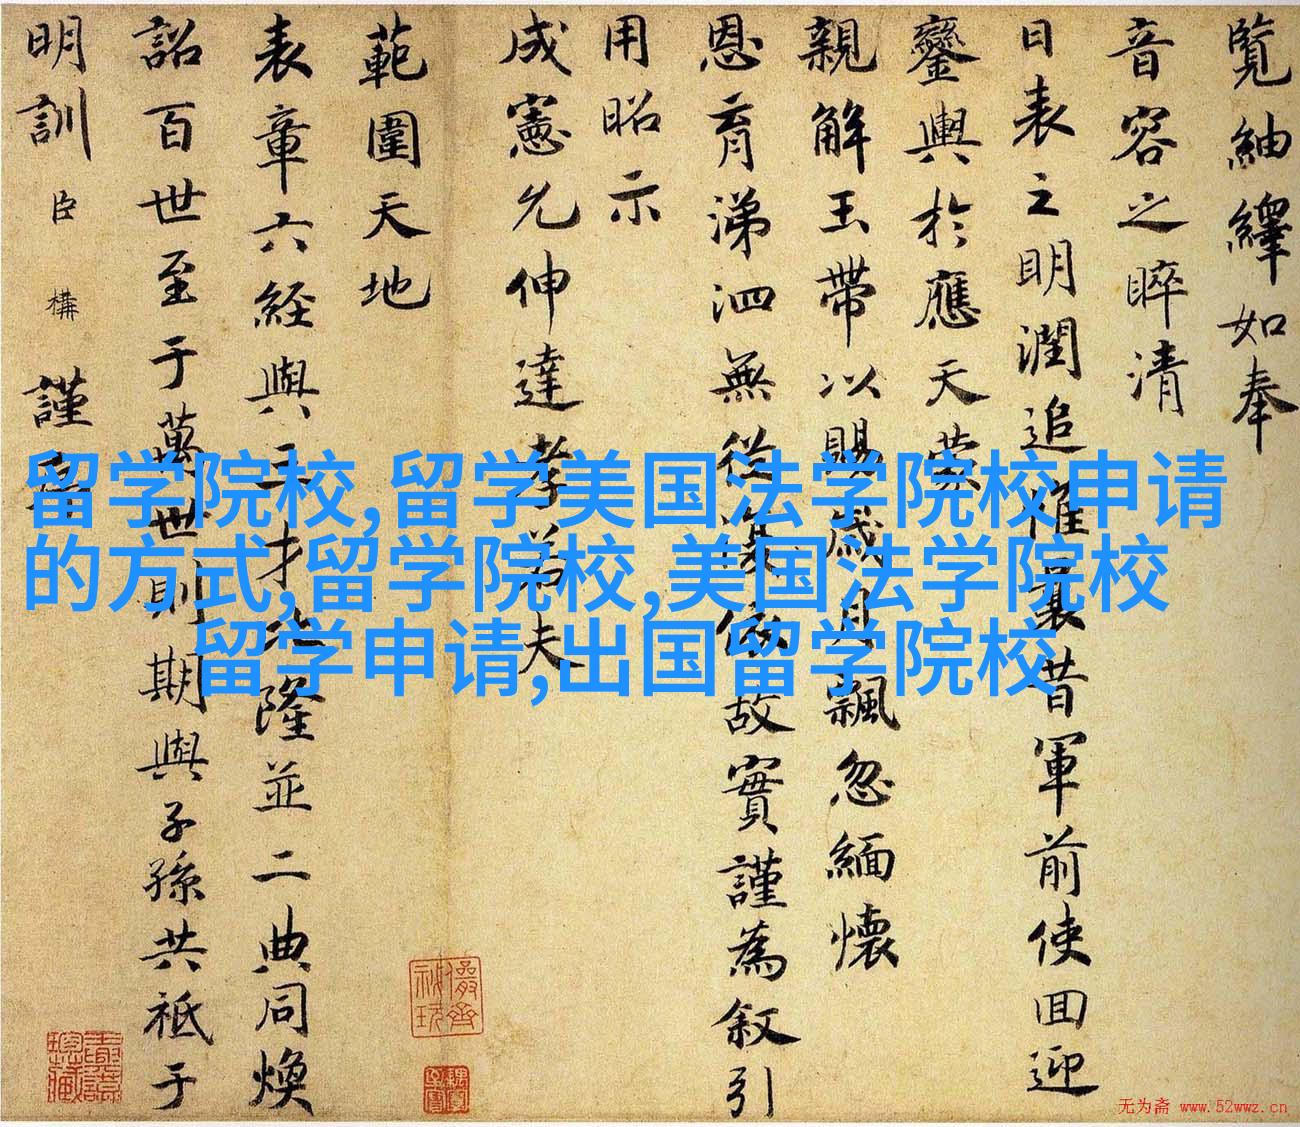 覽紬繹如奉
音容之睟清
日表之明潤追惟曩昔軍前使回迎
鑾輿於應天蒙
親解玉帶以賜歲月飄忽緬懷
恩育涕泗無從復依故實謹為叙引
用昭示
成憲允伸達孝若夫
範圍天地
表章六經與三才比隆並二典同煥
詔百世至于萬世則期與子孫共祗于
明訓臣構謹書
留学院校,留学美国法学院校申请
的方式,留学院校,美国法学院校
留学申请,出国留学院校
儼齋秘玩
无为斋 www.52wwz.cn